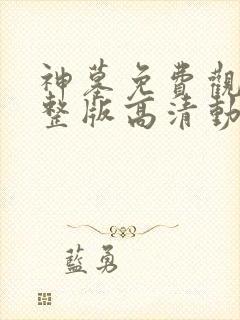 神墓免費觀
整版高清動
藍勇